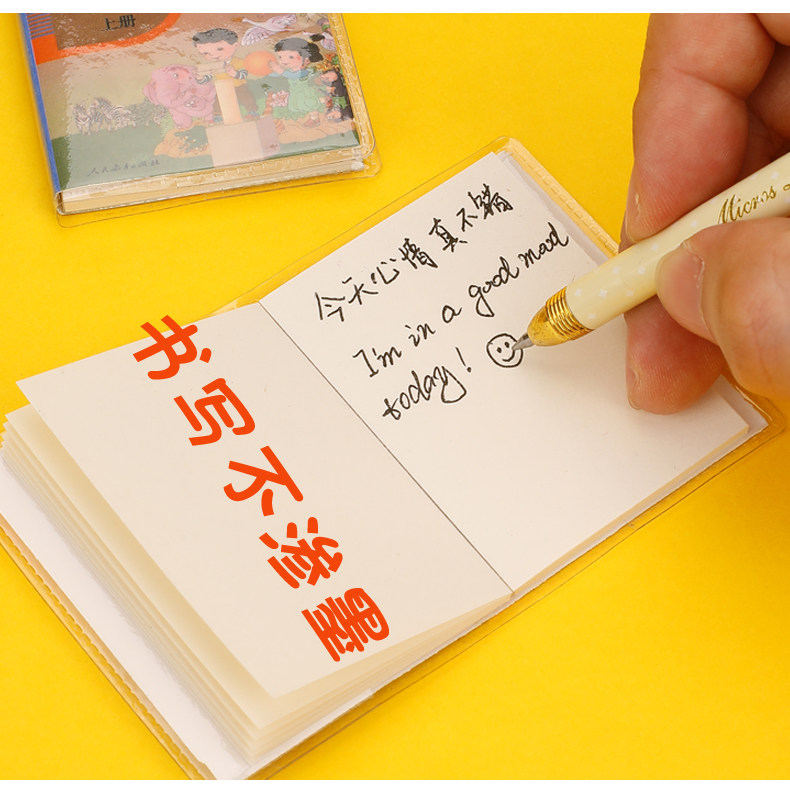 上册
人民教育出版社
今天心情真不错
I'm in a good mood
today!
Micros
书写不渗墨